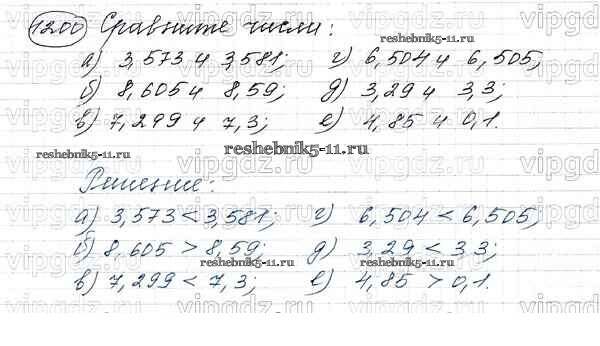 1200 Сравните числа:
reshebnik5-11.ru
а) 3,573 и 3,581; г) 6,504 и 6,505;
б) 8,605 и 8,59; д) 3,29 и 3,3;
в) 7,299 и 7,3; е) 4,85 и 0,1.
reshebnik5-11.ru reshebnik5-11.ru
Решение:
а) 3,573 < 3,581; г) 6,504 < 6,505;
б) 8,605 > 8,59; д) 3,29 < 3,3;
reshebnik5-11.ru reshebnik5-11.ru
в) 7,299 < 7,3; е) 4,85 > 0,1.
vipgdz.ru vipgdz.ru vipgdz.ru